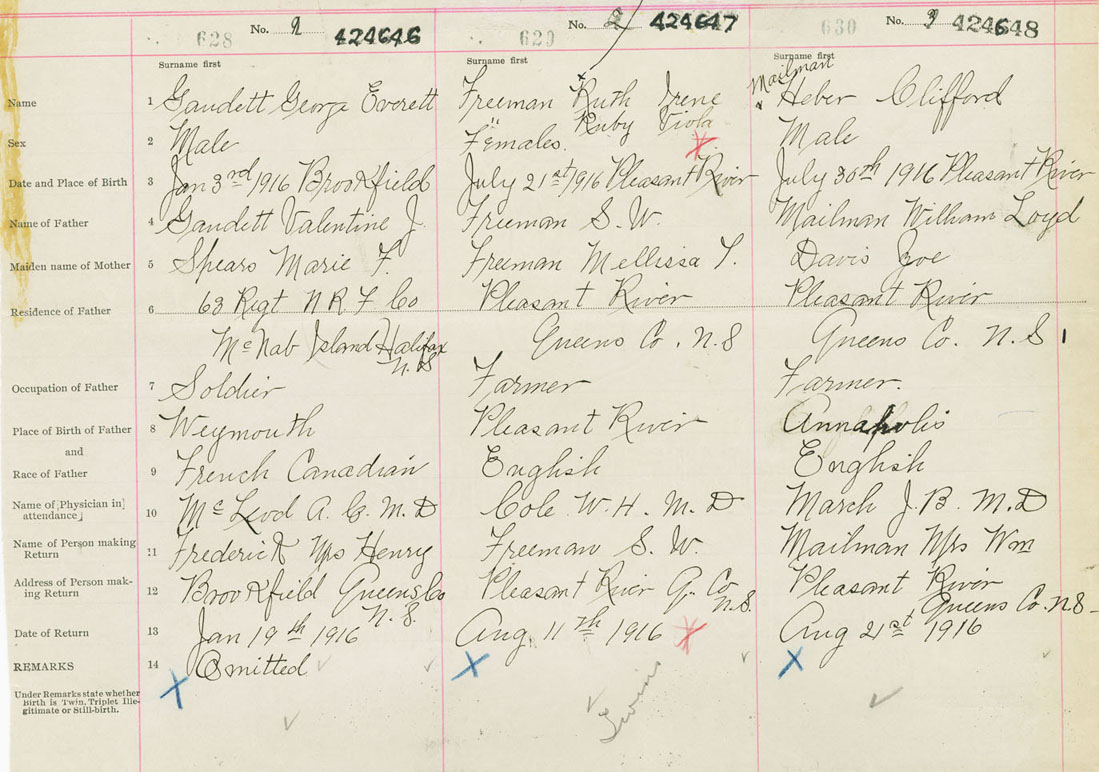 628 No. 2 424646 629 No. 2 424647 630 No. 3 424648
Surname first Surname first Surname first
Mailman
Name 1 Gaudett George Everett Freeman Ruth Irene Heber Clifford
Ruby Viola
Sex 2 Male Females. Male
Date and Place of Birth 3 Jan 3rd/1916 Brookfield July 21st/1916 Pleasant River July 30th 1916 Pleasant River
Name of Father 4 Gaudett Valentine J. Freeman S. W. Mailman William Loyd
Maiden name of Mother 5 Spears Marie F. Freeman Mellissa T. Davis Zoe
Residence of Father 6 63 Rigt N R F Co Pleasant River Pleasant River
McNab Island Halifax Queens Co. N.S Queens Co. N. S
N. S
Occupation of Father 7 Soldier Farmer Farmer.
Place of Birth of Father 8 Weymouth Pleasant River Annapolis
and
Race of Father 9 French Canadian English English
Name of [Physician in] attendance 10 McLeod A. C. M. D Cole W. H. M. D March J. B. M. D
Name of Person making Return 11 Frederick Mrs Henry Freeman S. W. Mailman Mrs Wm
Address of Person making Return 12 Brookfield Queens Co Pleasant River Q. Co Pleasant River
N. S. N.S. Queens Co. N S
Date of Return 13 Jan 19th 1916 Aug 11th 1916 Aug 21st 1916
REMARKS 14 Omitted
Under Remarks state whether
Birth is Twin, Triplet Ille-
gitimate or Still-birth.
Twins